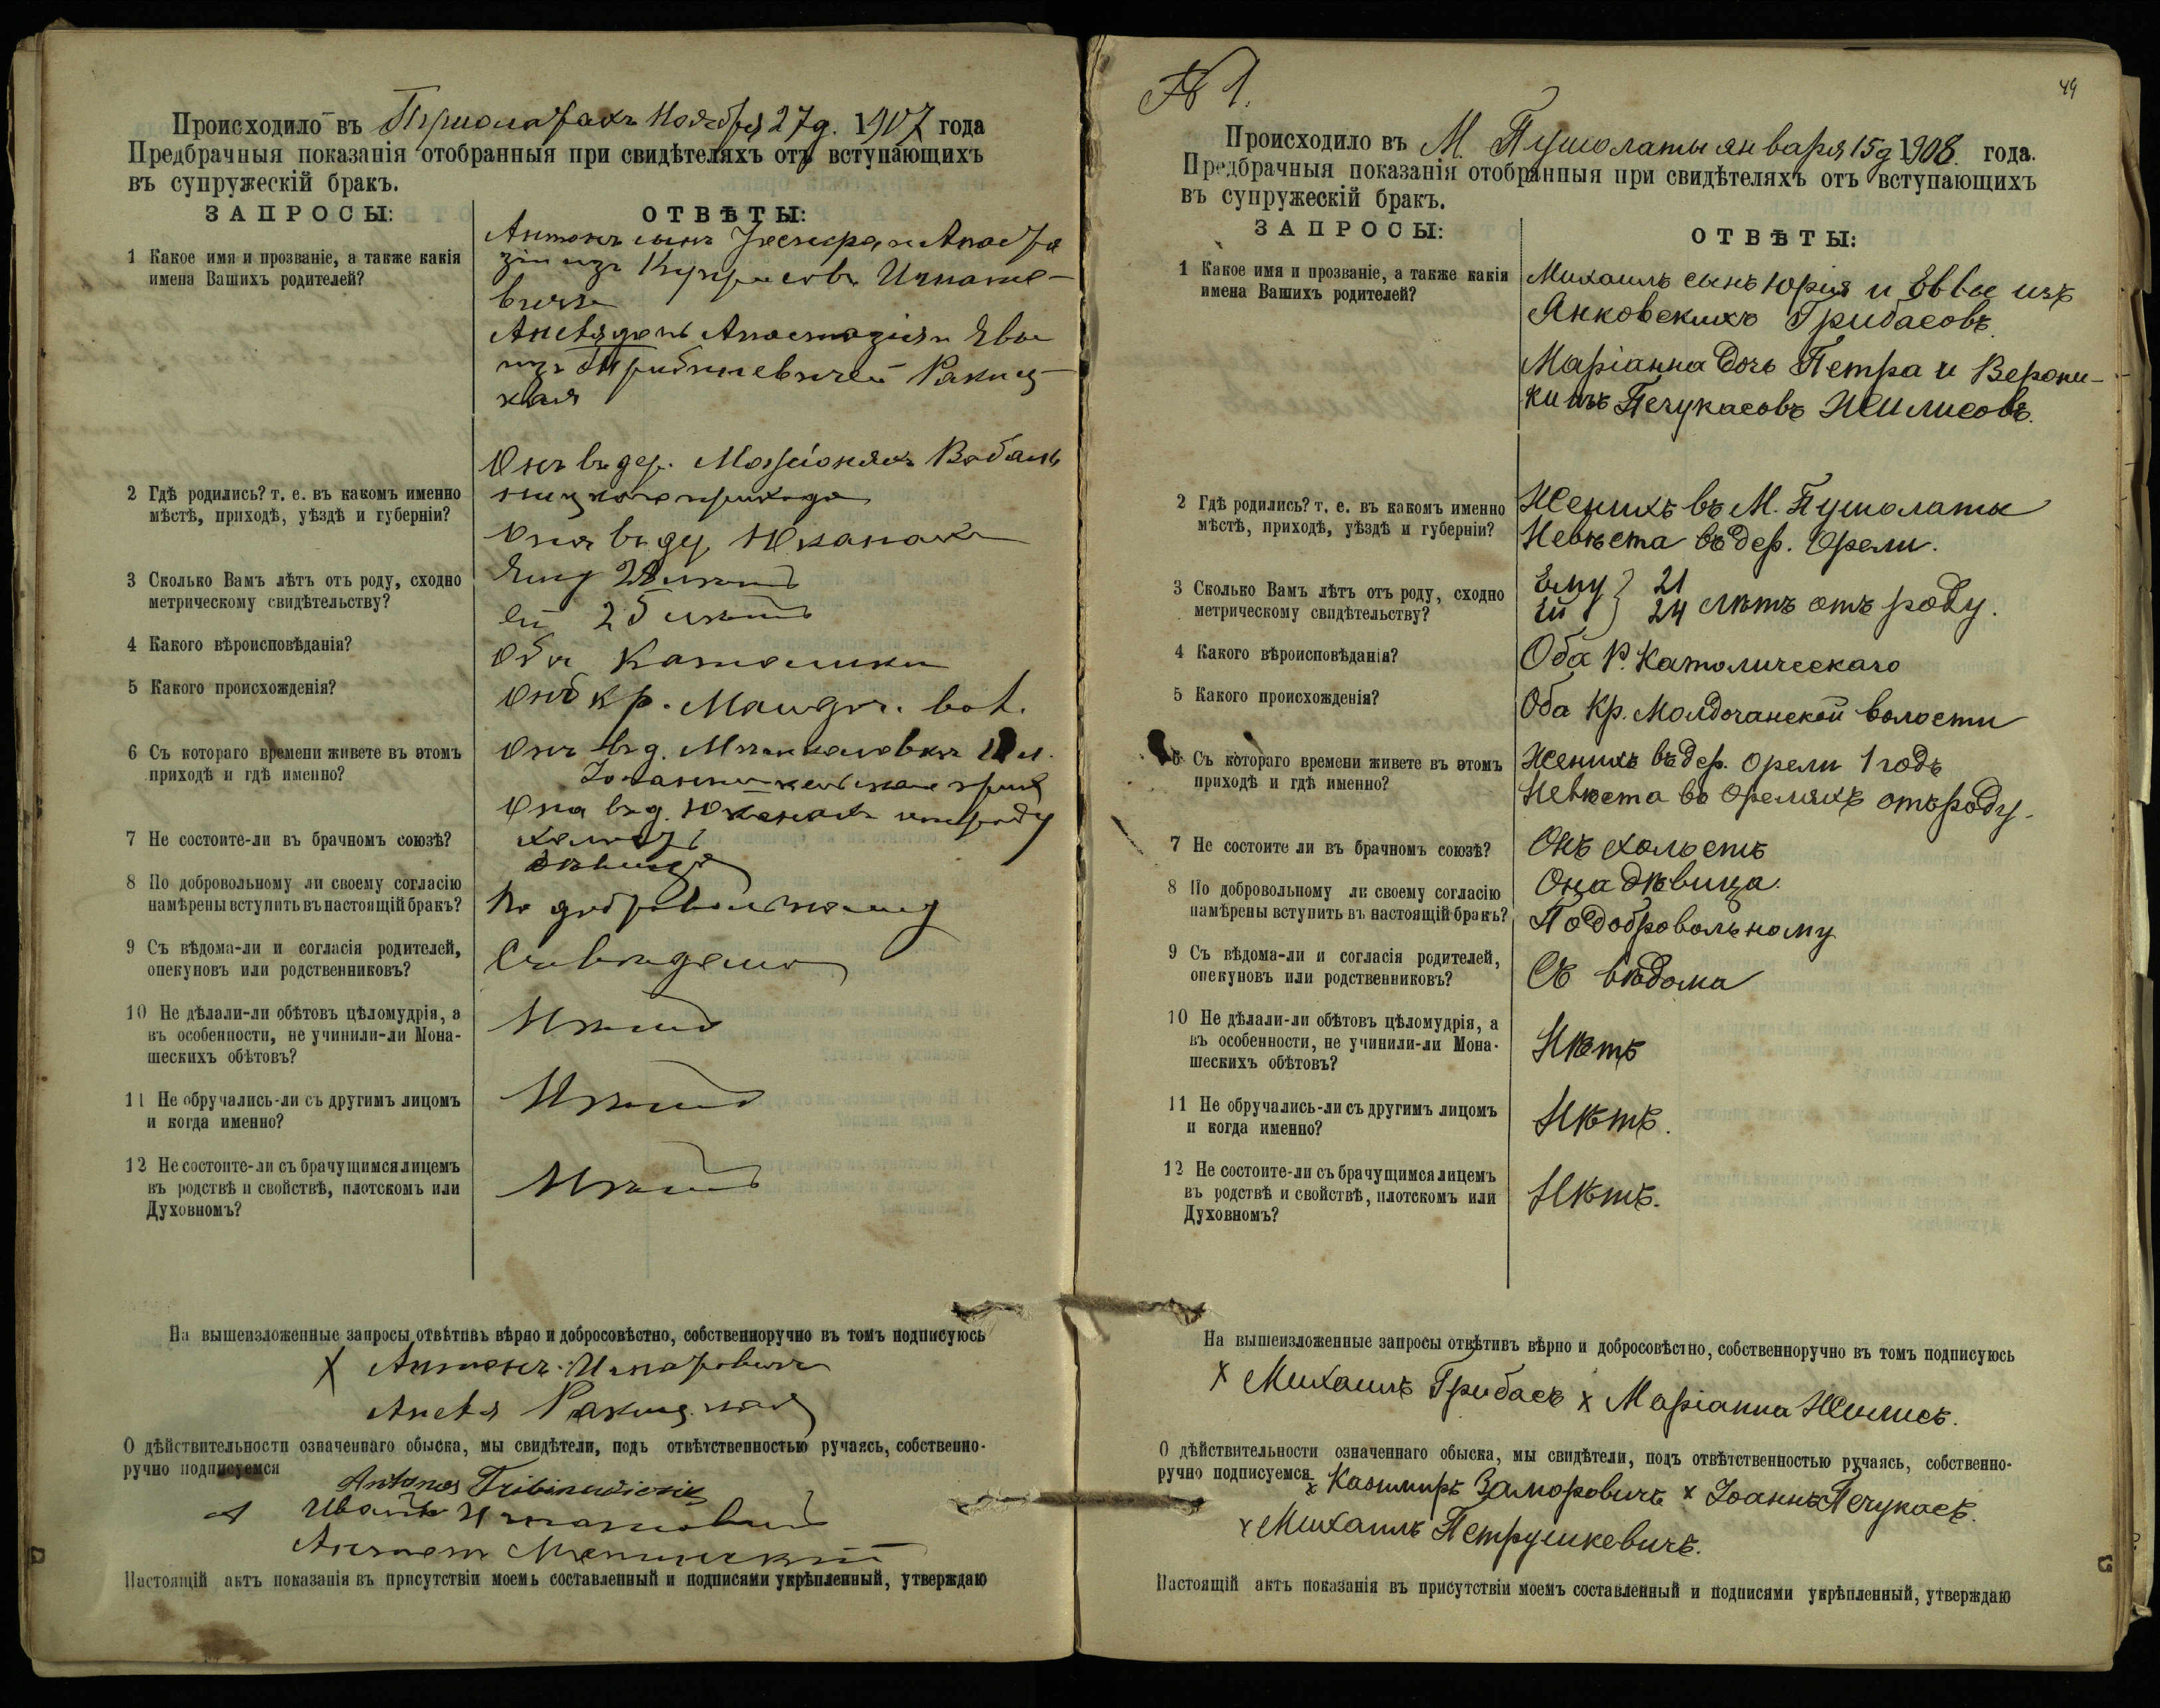 Происходило въ Ноября 27 д. 1907 года
Предбрачныя показанія отобранныя при свидѣтеляхъ отъ вступающихъ
въ супружескій бракъ.
ЗАПРОСЫ:
ОТВѢТЫ:
1 Какое имя и прозваніе, а также какія
имена Вашихъ родителей?
Антонъ сынъ
изъ
Анеля дочь Анастазія и Евы
изъ Ракиц-
кая
2 Гдѣ родились? т. е. въ какомъ именно
мѣстѣ, приходѣ, уѣздѣ и губерніи?
Онъ въ дер. Вабаль-
ницкаго прихода
Она въ де.
3 Сколько Вамъ лѣтъ отъ роду, сходно
метрическому свидѣтельству?
Ему лѣтъ
ей 25 лѣтъ
4 Какого вѣроисповѣданія?
Оба Католики
5 Какого происхожденія?
Оба кр. вол.
6 Съ котораго времени живете въ этомъ
приходѣ и гдѣ именно?
Онъ въ д.
Она въ д. отъ роду
7 Не состоите-ли въ брачномъ союзѣ?
холостъ
дѣвица
8 По добровольному ли своему согласію
намѣрены вступить въ настоящій бракъ?
По добровольному
9 Съ вѣдома-ли и согласія родителей,
опекуновъ или родственниковъ?
Съ вѣдома
10 Не дѣлали-ли обѣтовъ цѣломудрія, а
въ особенности, не учинили-ли Мона-
шескихъ обѣтовъ?
Нѣтъ
11 Не обручались-ли съ другимъ лицомъ
и когда именно?
Нѣтъ
12 Не состоите-ли съ брачущимся лицемъ
въ родствѣ и свойствѣ, плотскомъ или
Духовномъ?
Нѣтъ
На вышеизложенные запросы отвѣтивъ вѣрно и добросовѣстно, собственноручно въ томъ подписуюсь
X Антонъ
Анеля Ракицкая
О дѣйствительности означеннаго обыска, мы свидѣтели, подъ отвѣтственностью ручаясь, собственно-
ручно подписуемся
Antonas
Иванъ
Настоящій актъ показанія въ присутствіи моемъ составленный и подписями укрѣпленный, утверждаю
49
№ 1.
Происходило въ М. Пушолаты января 15 д 1908. года.
Предбрачныя показанія отобранныя при свидѣтеляхъ отъ вступающихъ
въ супружескій бракъ.
ЗАПРОСЫ:
ОТВѢТЫ:
1 Какое имя и прозваніе, а также какія
имена Вашихъ родителей?
Михаилъ сынъ Юрія и Евы изъ
Янковскихъ Грибасовъ.
Маріанна дочь Петра и Верони-
ки изъ Печукасовъ Жилисовъ.
2 Гдѣ родились? т. е. въ какомъ именно
мѣстѣ, приходѣ, уѣздѣ и губерніи?
Женихъ въ М. Пушолаты
Невѣста въ дер. Орели.
3 Сколько Вамъ лѣтъ отъ роду, сходно
метрическому свидѣтельству?
Ему } 21
Ей } 24 лѣтъ отъ роду.
4 Какого вѣроисповѣданія?
Оба Р. Католическаго
5 Какого происхожденія?
Оба Кр. Молдочанской волости
6 Съ котораго времени живете въ этомъ
приходѣ и гдѣ именно?
Женихъ въ дер. Орели 1 годъ
Невѣста въ Ореляхъ отъ роду.
7 Не состоите ли въ брачномъ союзѣ?
Онъ холостъ
Она дѣвица.
8 По добровольному ли своему согласію
намѣрены вступить въ настоящій бракъ?
По добровольному
9 Съ вѣдома-ли и согласія родителей,
опекуновъ или родственниковъ?
Съ вѣдома
10 Не дѣлали-ли обѣтовъ цѣломудрія, а
въ особенности, не учинили-ли Мона-
шескихъ обѣтовъ?
Нѣтъ
11 Не обручались-ли съ другимъ лицомъ
и когда именно?
Нѣтъ.
12 Не состоите-ли съ брачущимся лицемъ
въ родствѣ и свойствѣ, плотскомъ или
Духовномъ?
Нѣтъ.
На вышеизложенные запросы отвѣтивъ вѣрно и добросовѣстно, собственноручно въ томъ подписуюсь
X Михаилъ Грибасъ X Маріанна Жилисъ.
О дѣйствительности означеннаго обыска, мы свидѣтели, подъ отвѣтственностью ручаясь, собственно-
ручно подписуемся X Казимиръ Заморовичъ X Іоаннъ Печукасъ.
X Михаилъ Петрушкевичъ.
Настоящій актъ показанія въ присутствіи моемъ составленный и подписями укрѣпленный, утверждаю